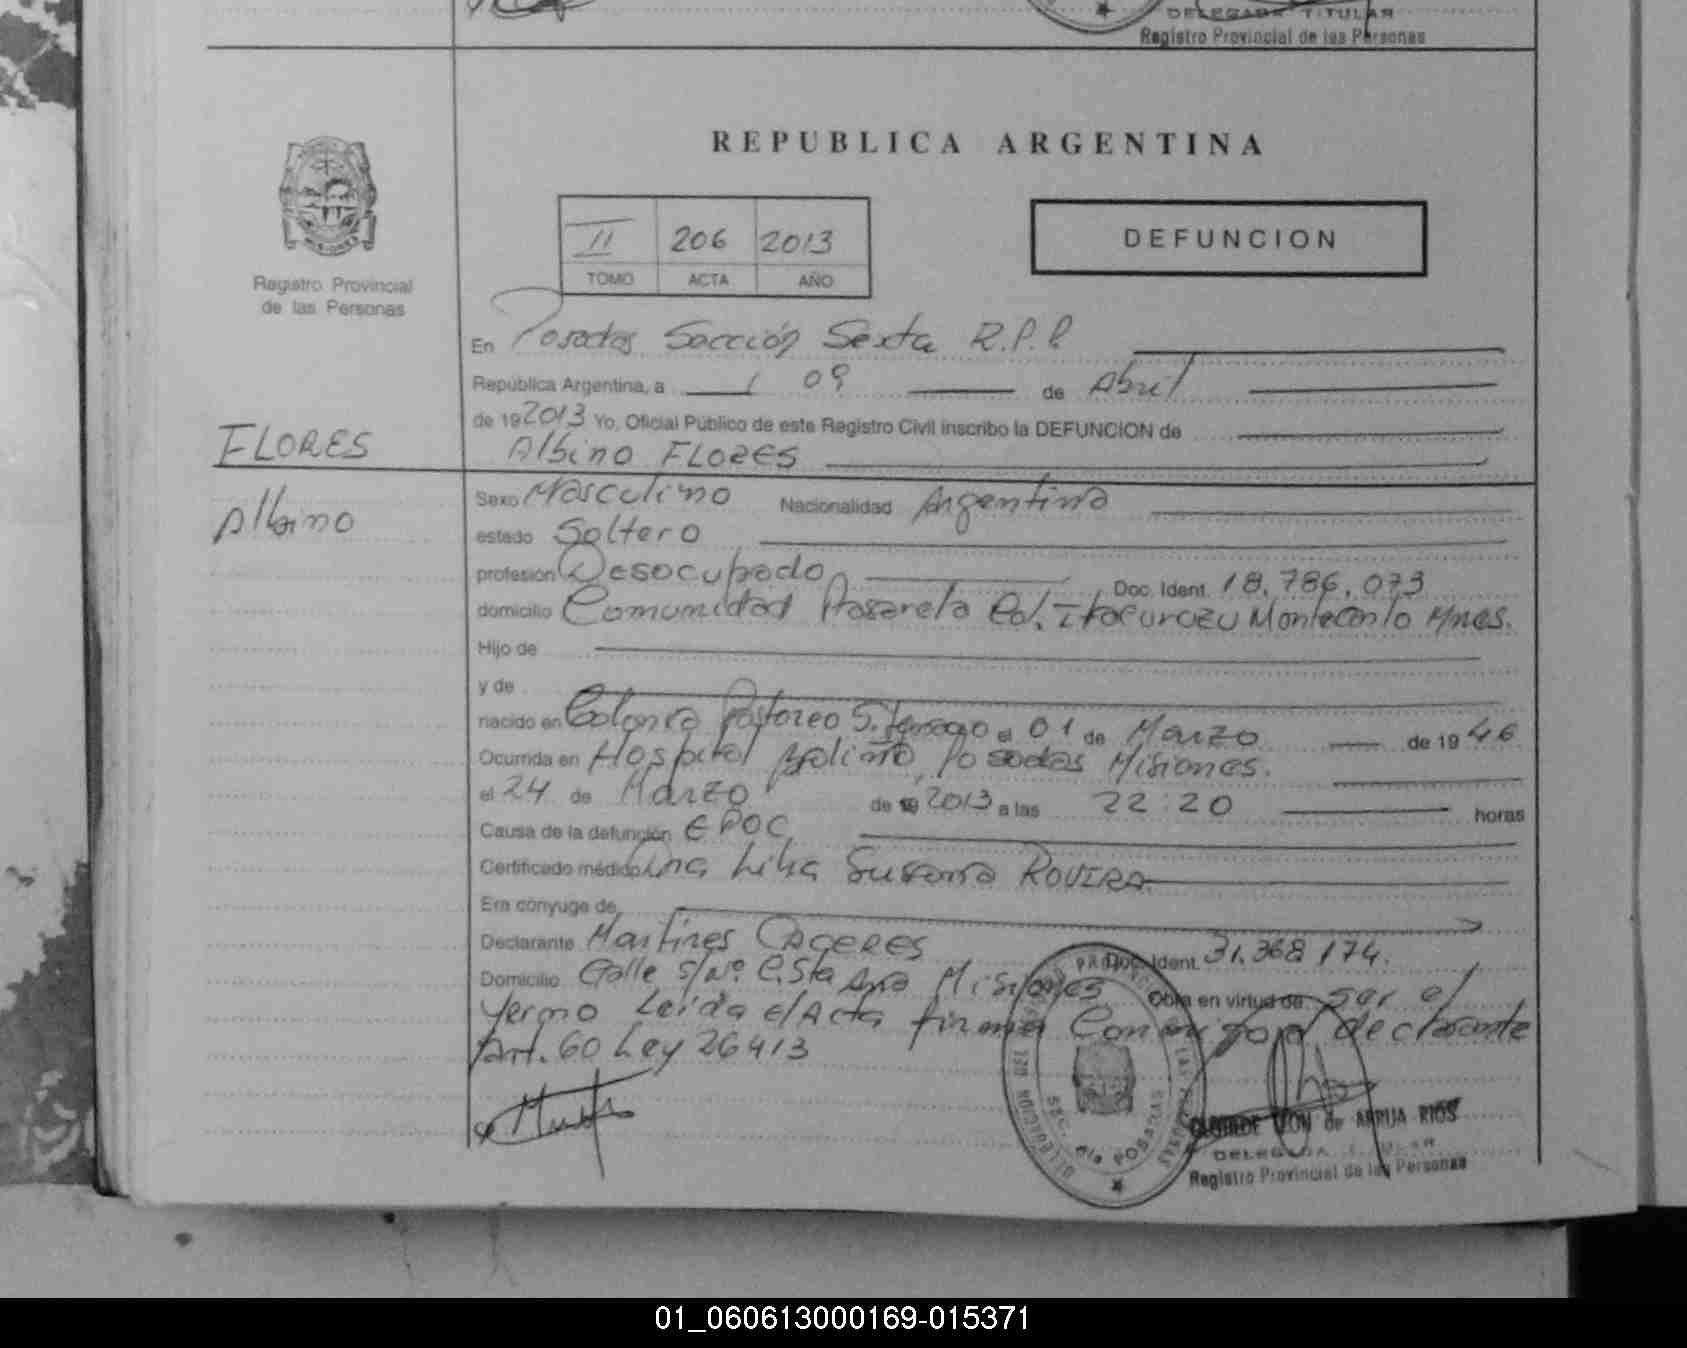 DELEGADA TITULAR
Registro Provincial de las Personas
REPUBLICA ARGENTINA
II 206 2013
TOMO ACTA AÑO
DEFUNCION
MISIONES
Registro Provincial
de las Personas
En Posadas Sección Sexta R.P.P
República Argentina, a 09 de Abril
de 192013 Yo, Oficial Público de este Registro Civil inscribo la DEFUNCION de
FLORES
Albino FLORES
Albino
Sexo Masculino Nacionalidad Argentina
estado Soltero
profesión Desocupado Doc. Ident. 18.786.073
domicilio Comunidad Col. Montecarlo Mnes.
Hijo de
y de
nacido en Colonia Pastoreo el 01 de Marzo de 19 46
Ocurrida en Hospital Posadas Misiones.
el 24 de Marzo de 19 2013 a las 22:20 horas
Causa de la defunción EPOC
Certificado médico Lilia Susana ROVIRA
Era cónyuge de
Declarante Martires CACERES Doc. Ident. 31.368.174.
Domicilio Calle s/Nº Sta Ana Misiones Obra en virtud de ser el
Yerno Leida e/Acta firma Conmigo el declarante
Art. 60 Ley 26413
DELEGACION DEL REGISTRO PROVINCIAL DE LAS PERSONAS
SEC. 6ta POSADAS
de ARRUA RIOS
DELEGADA TITULAR
Registro Provincial de las Personas
01_060613000169-015371